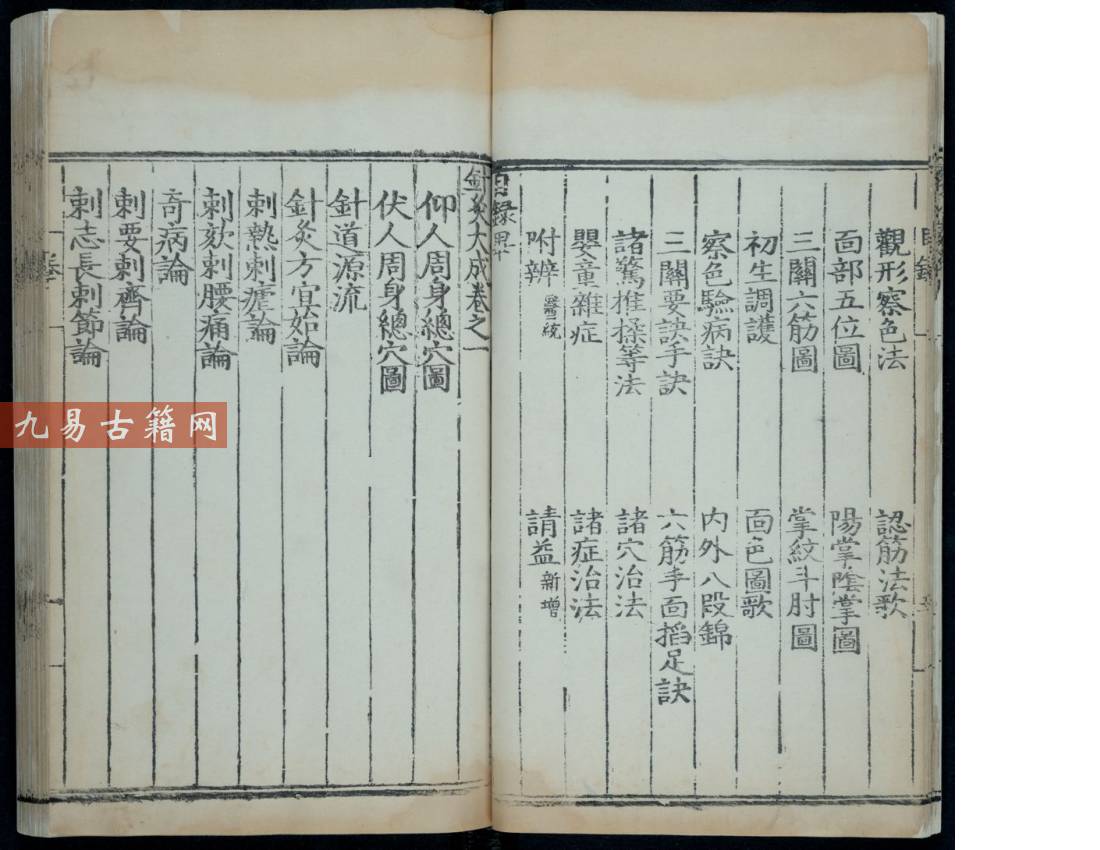 觀形察色法 認筋法歌
面部五位圖 陽掌陰掌圖
三關六筋圖 掌紋斗肘圖
初生調護 面色圖歌
察色驗病訣 内外八段錦
三關要訣手訣 六筋手面掐足訣
諸驚推揉等法 諸穴治法
嬰童雜症 諸症治法
附辨 醫統 請益 新增
目錄畢
針灸大成卷之一
仰人周身總穴圖
伏人周身總穴圖
針道源流
針灸方宜始論
刺熱刺瘧論
刺欬刺腰痛論
奇病論
刺要刺齊論
刺志長刺節論
九易古籍网